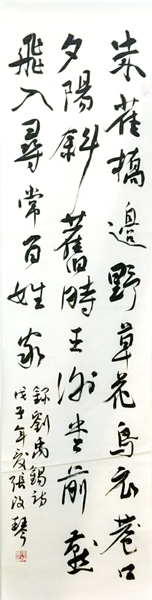 朱雀橋邊野草花烏衣巷口
夕陽斜舊時王謝堂前燕
飛入尋常百姓家
録劉禹錫詩
戊子年夏張改琴